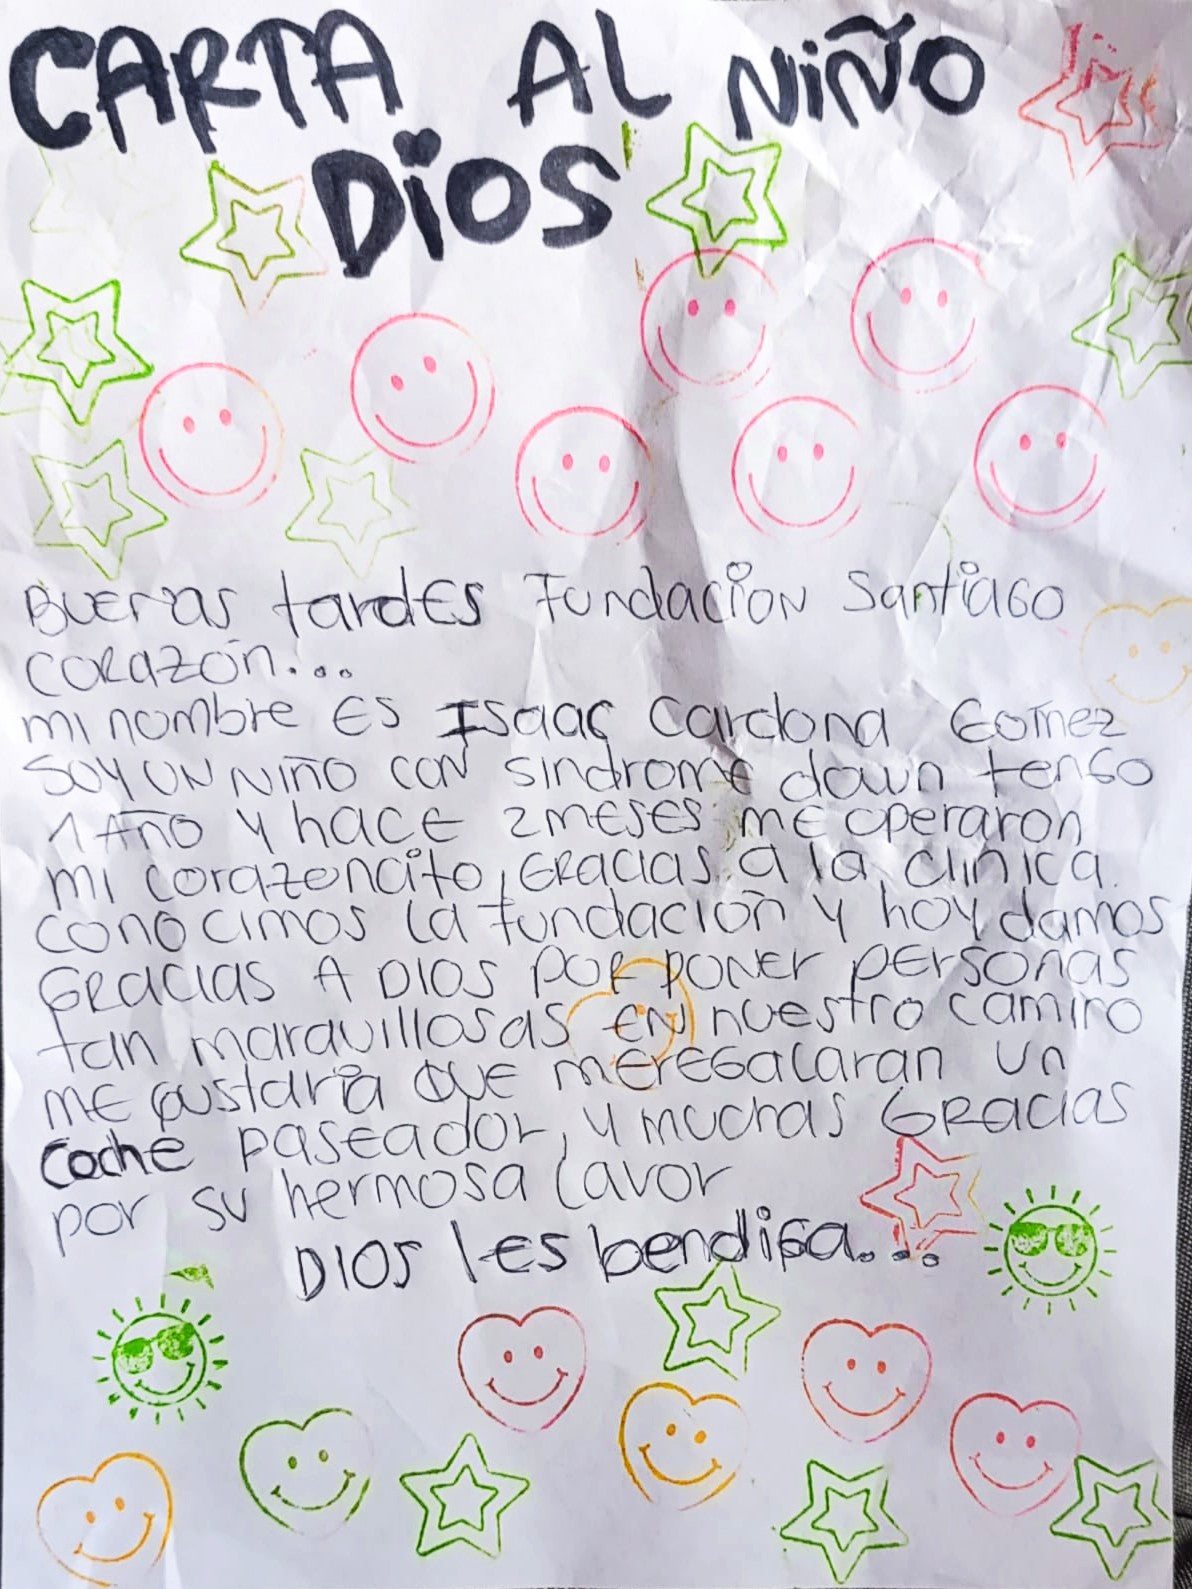 CARTA AL NIÑO
DIOS
Buenas tardes Fundacion Santiago
corazón...
mi nombre es Isaac Cardona Gomez
soy un niño con sindrome down tengo
1 año y hace 2 meses me operaron
mi corazoncito, Gracias a la clinica
conocimos la fundación y hoy damos
Gracias a Dios por poner personas
tan maravillosas en nuestro camino
me gustaria que me regalaran un
coche paseador, y muchas Gracias
por su hermosa lavor
Dios les bendiga...